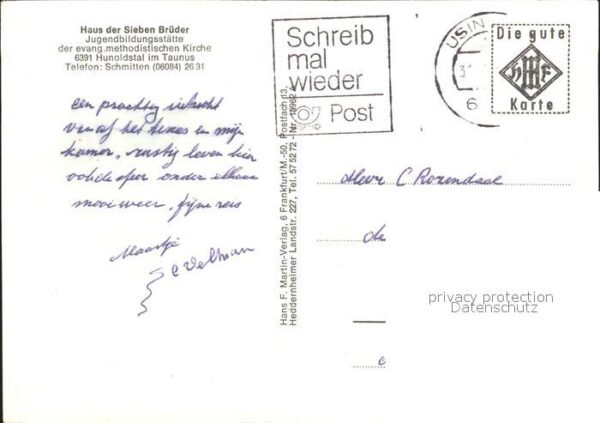 Haus der Sieben Brüder
Jugendbildungsstätte
der evang.methodistischen Kirche
6391 Hunoldstal im Taunus
Telefon: Schmitten (06084) 26 31
een prachtig uitzicht
vanaf het terras en mijn
kamer, rustig leven hier
ook de sfeer onder elkaar
mooi weer, fijne reis
Maartje
C Veltman
Hans F. Martin-Verlag, 6 Frankfurt/M.-50, Postfach 13,
Heddernheimer Landstr. 227, Tel. 57 52 72 - Nr.
Schreib
mal
wieder
Post
USIN
6
Die gute
HMF
Karte
Herr C Rozendaal
de
privacy protection
Datenschutz